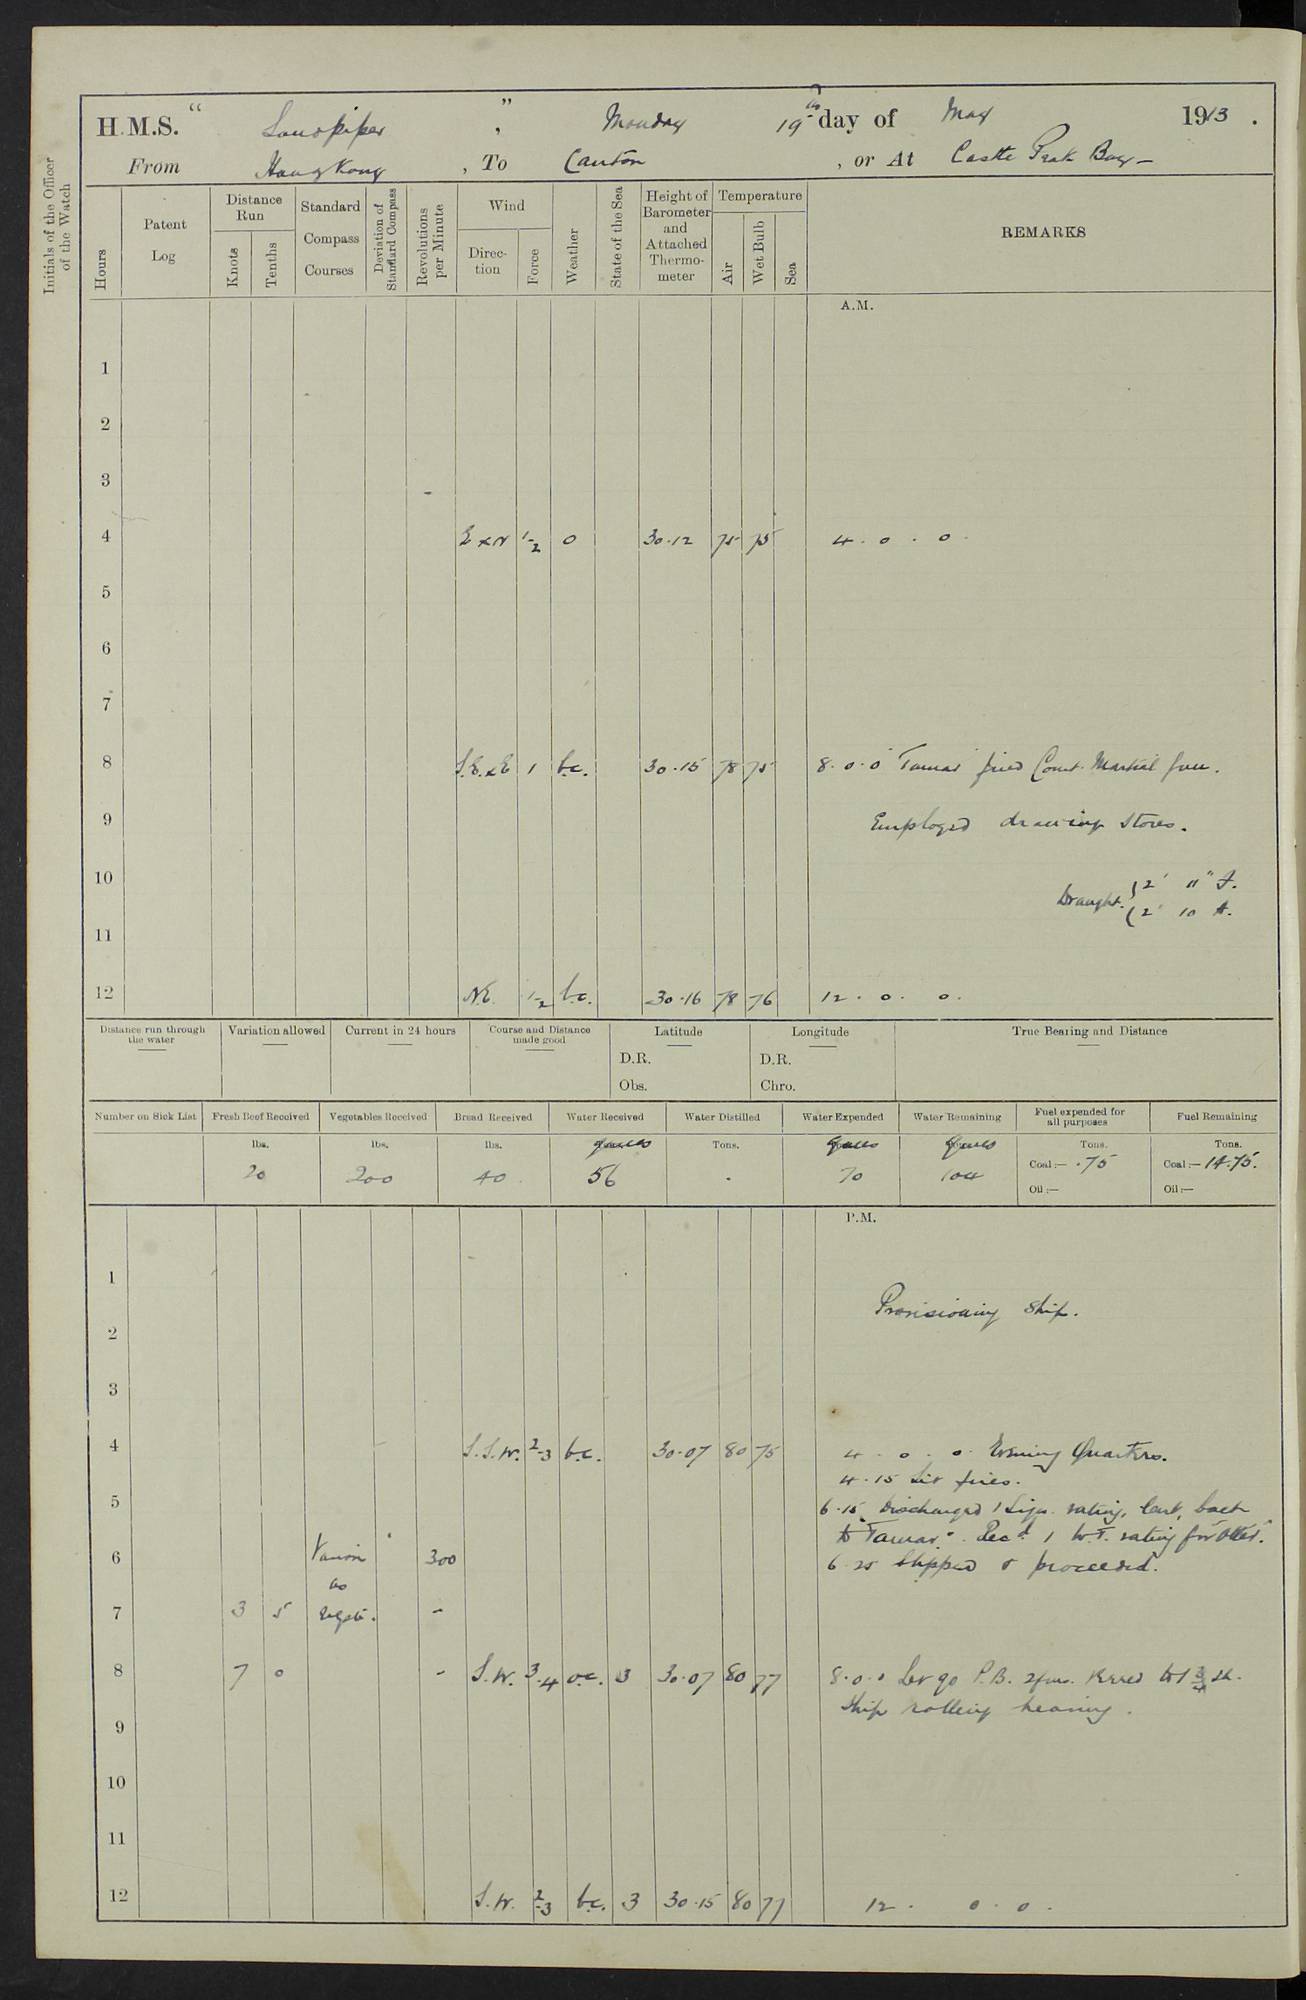 H.M.S. " Sandpiper ", Monday 19th day of May 1913.
From Hong Kong, To Canton, or At Castle Peak Bay –
Initials of the Officer of the Watch
Hours
Patent Log
Distance Run
Knots
Tenths
Standard Compass Courses
Deviation of Standard Compass
Revolutions per Minute
Wind
Direction
Force
Weather
State of the Sea
Height of Barometer and Attached Thermometer
Temperature
Air
Wet Bulb
Sea
REMARKS
A.M.
1
2
3
4 E x N 1-2 o 30.12 75 75 4 . 0 . 0 .
5
6
7
8 S.E. x E 1 b.c. 30.15 78 75 8.0.0 "Tamar" fired Court Martial gun.
9 Employed drawing stores.
10 Draught { 2' 11" F.
{ 2' 10 A.
11
12 N.E. 1-2 b.c. 30.16 78 76 12 . 0 . 0 .
Distance run through the water
Variation allowed
Current in 24 hours
Course and Distance made good
Latitude
D.R.
Obs.
Longitude
D.R.
Chro.
True Bearing and Distance
Number on Sick List
Fresh Beef Received
Vegetables Received
Bread Received
Water Received
Water Distilled
Water Expended
Water Remaining
Fuel expended for all purposes
Fuel Remaining
lbs. lbs. lbs. Tons. Tons. Tons.
20 200 40 56 . 70 104 Coal:— .75 Coal:— 14.75.
Oil:— Oil:—
P.M.
1
Provisioning ship.
2
3
4 S.S.W. 2-3 b.c. 30.07 80 75 4 . 0 . 0 . Evening Quarters.
4.15 Lit fires.
5 6.15 Discharged 1 Sign. rating, lent, back
to "Tamar". Recd. 1 W.T. rating for "Otter".
6 Various 300 6.25 Slipped & proceeded.
as
7 3 5 requisite. -
8 7 0 - S.W. 3-4 o.c. 3 30.07 80 77 8.0.0 Let go P.B. 2 fms. Veered to 1 3/4 sh.
Ship rolling heavily.
9
10
11
12 S.W. 2-3 b.c. 3 30.15 80 77 12 . 0 . 0 .